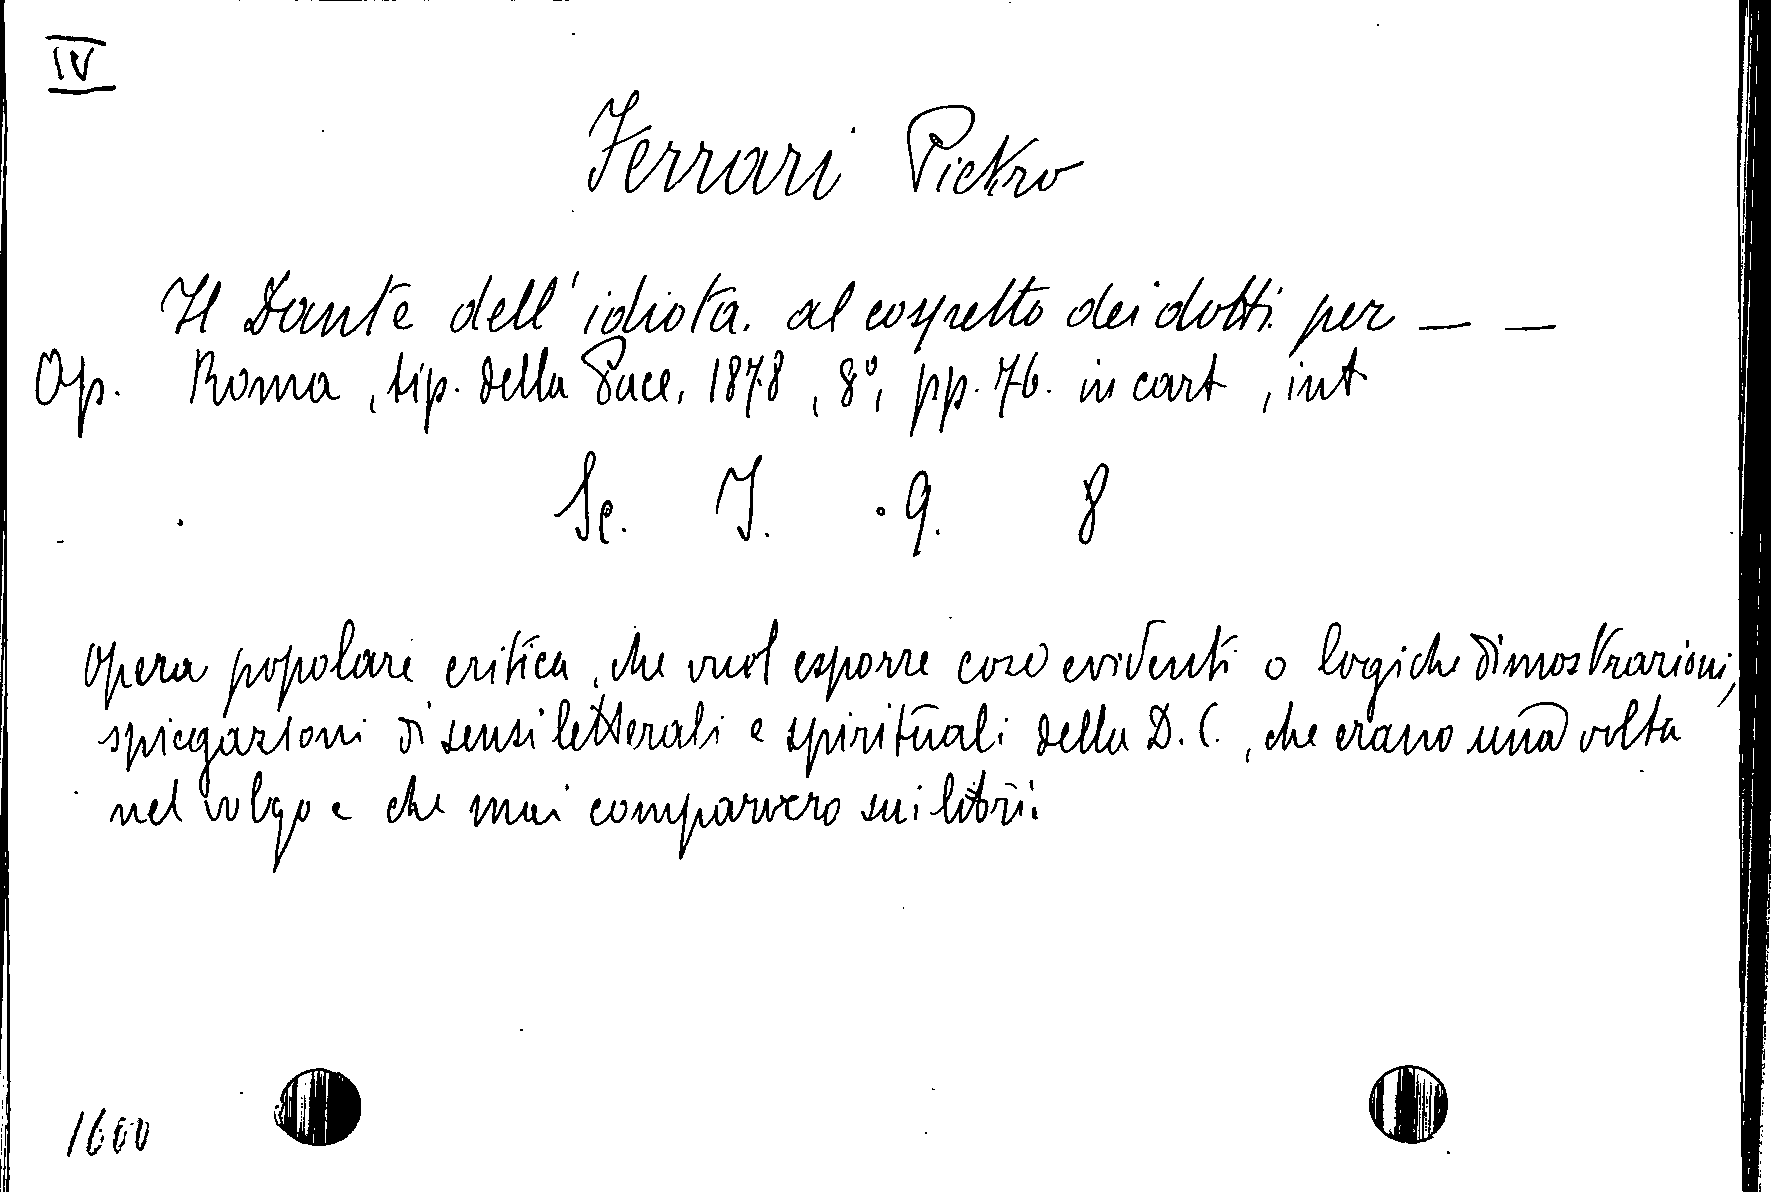 IV
Ferrari Pietro
Il Dante dell'idiota. al cospetto dei dotti per — —
Op. Roma, tip. della Pace, 1878, 8°, pp. 76. in cart, int
Sc. I. 9. 8
Opera popolare critica, che vuol esporre cose evidenti o logiche dimostrazioni,
spiegazioni di sensi letterali e spirituali della D. C., che erano una volta
nel volgo e che mai comparvero sui libri.